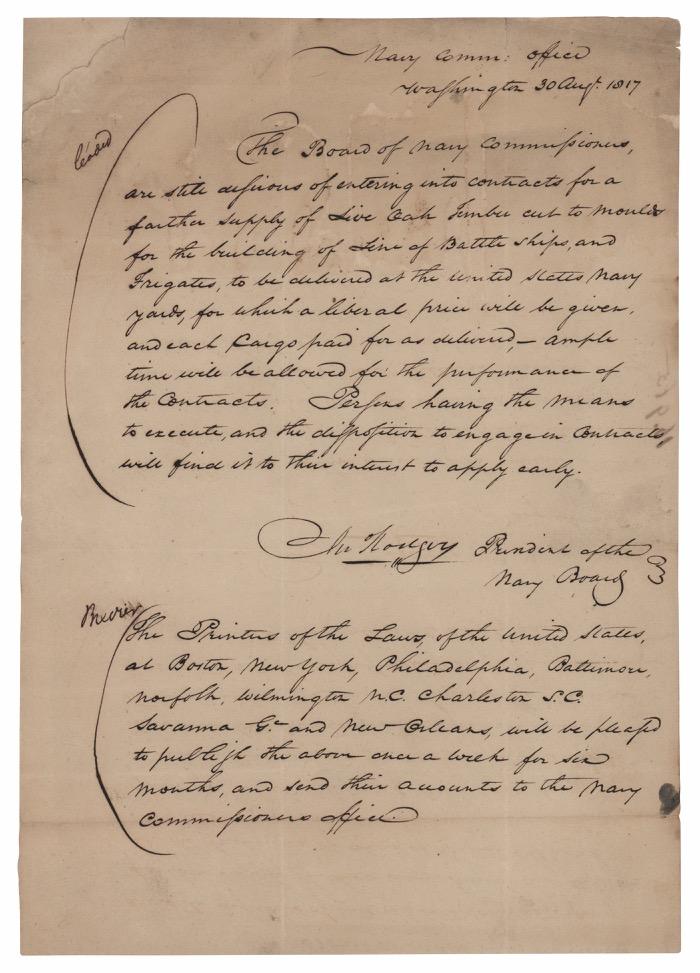 Navy Comm: office
Washington 30 Augt. 1817
leaded
The Board of Navy Commissioners,
are still desirous of entering into contracts for a
farther supply of Live Oak Timber cut to moulds
for the building of Line of Battle ships, and
Frigates, to be delivered at the United States Navy
yards, for which a liberal price will be given,
and each Cargo paid for as delivered,— ample
time will be allowed for the performance of
the Contracts. Persons having the means
to execute, and the disposition to engage in Contracts,
will find it to their interest to apply early.
Jno Rodgers President of the
Navy Board
Brevier
The Printers of the Laws, of the United States,
at Boston, New York, Philadelphia, Baltimore,
Norfolk, Wilmington N.C. Charleston S.C.
Savanna Ga. and New Orleans, will be pleased
to publish the above once a week for six
months, and send their accounts to the Navy
Commissioners office